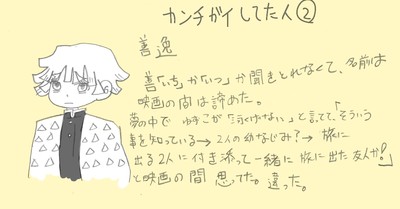 カンチガイしてた人②
善逸
善「いち」か「いつ」か聞きとれなくて、名前は
映画の間は諦めた。
夢の中で ねずこが「泳げない」と言ってて、「そういう
事を知っている→2人の幼なじみ?→ 旅に
出る2人に付き添って一緒に旅に出た友人か!」
と映画の間 思ってた。違った。